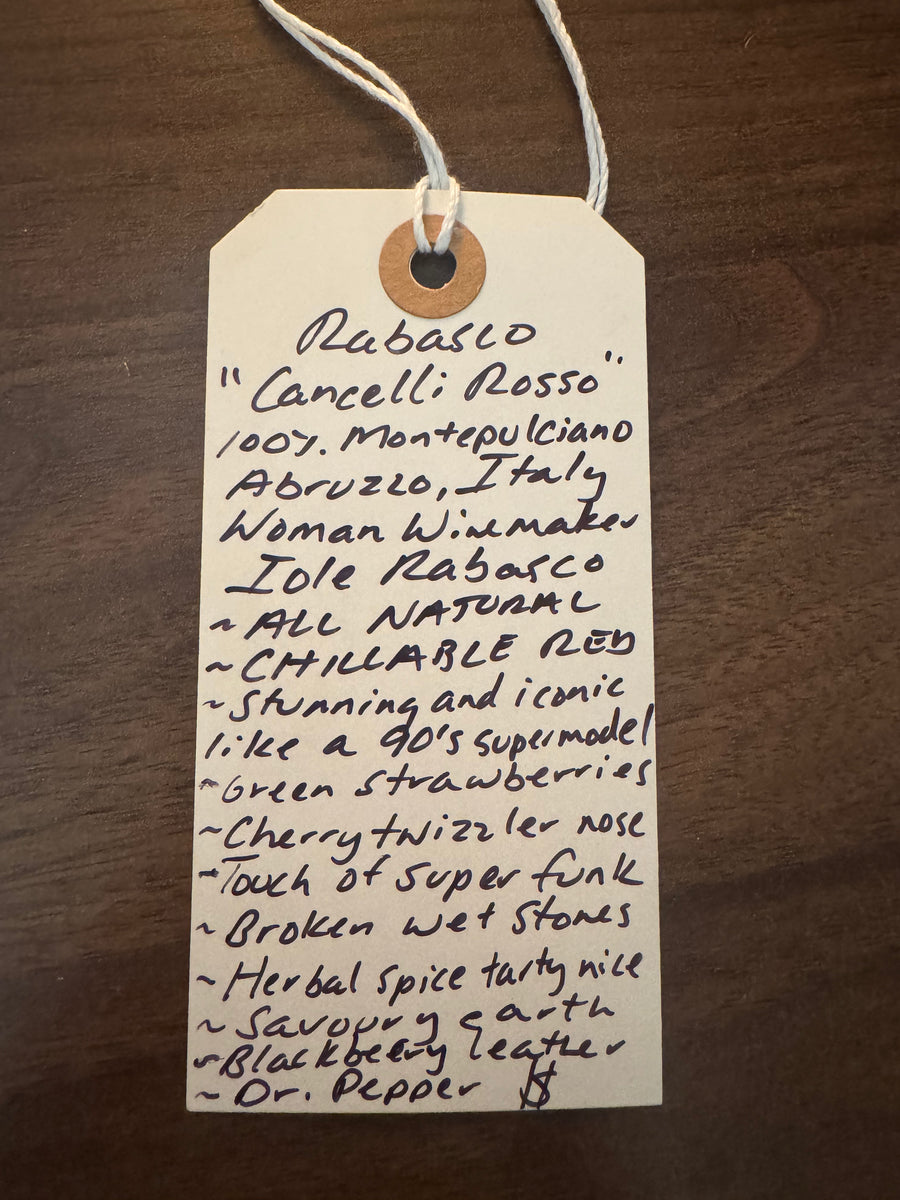 Rabasco
"Cancelli Rosso"
100%. Montepulciano
Abruzzo, Italy
Woman Winemaker
Iole Rabasco
~ ALL NATURAL
~ CHILLABLE RED
~ Stunning and iconic
like a 90's supermodel
~ Green strawberries
~ Cherry twizzler nose
~ Touch of super funk
~ Broken wet stones
~ Herbal spice tarty nice
~ Savoury earth
~ Blackberry leather
~ Dr. Pepper $